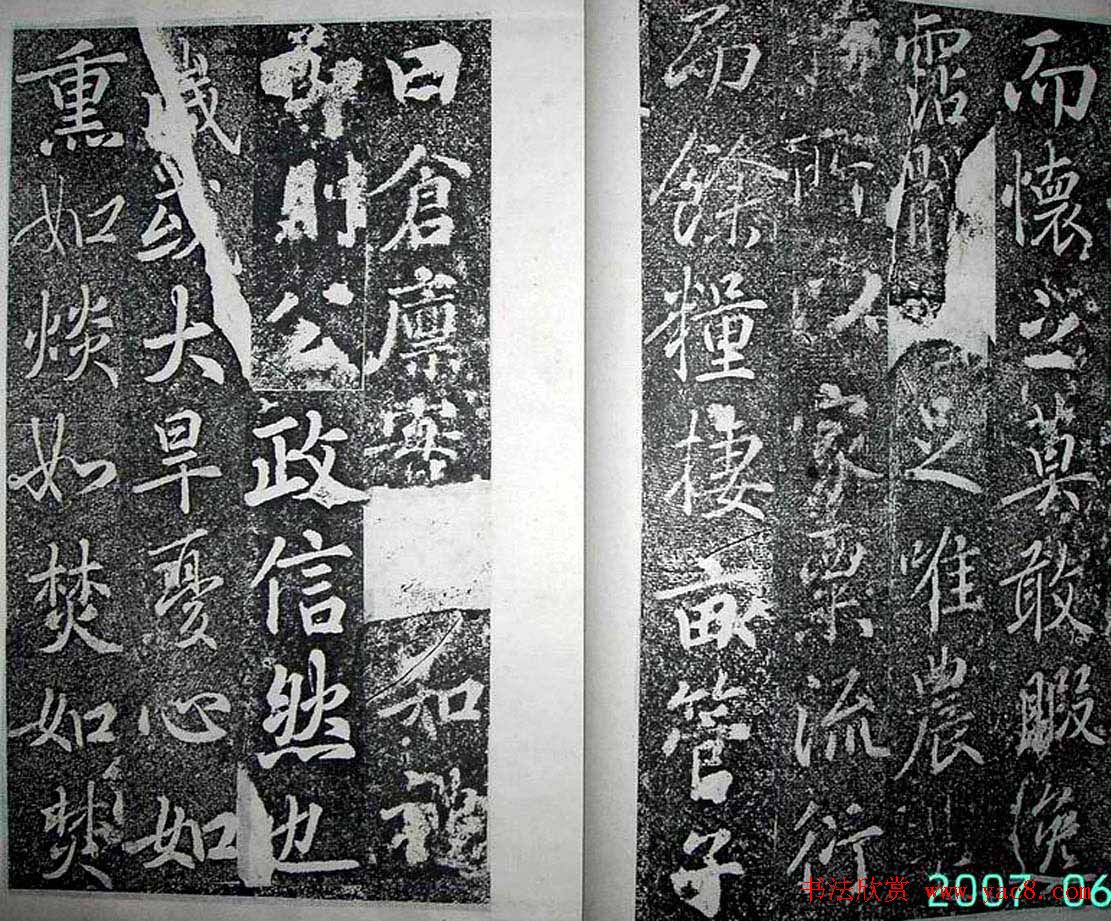 而懷之莫敢暇逸
霑體足唯農
所以家粟流衍
而餘糧棲畝管子
曰倉廩實和禮
公政信然也
歲或大旱憂心如
熏如惔如焚如焚
书法欣赏 www.yac8.com
2007 06